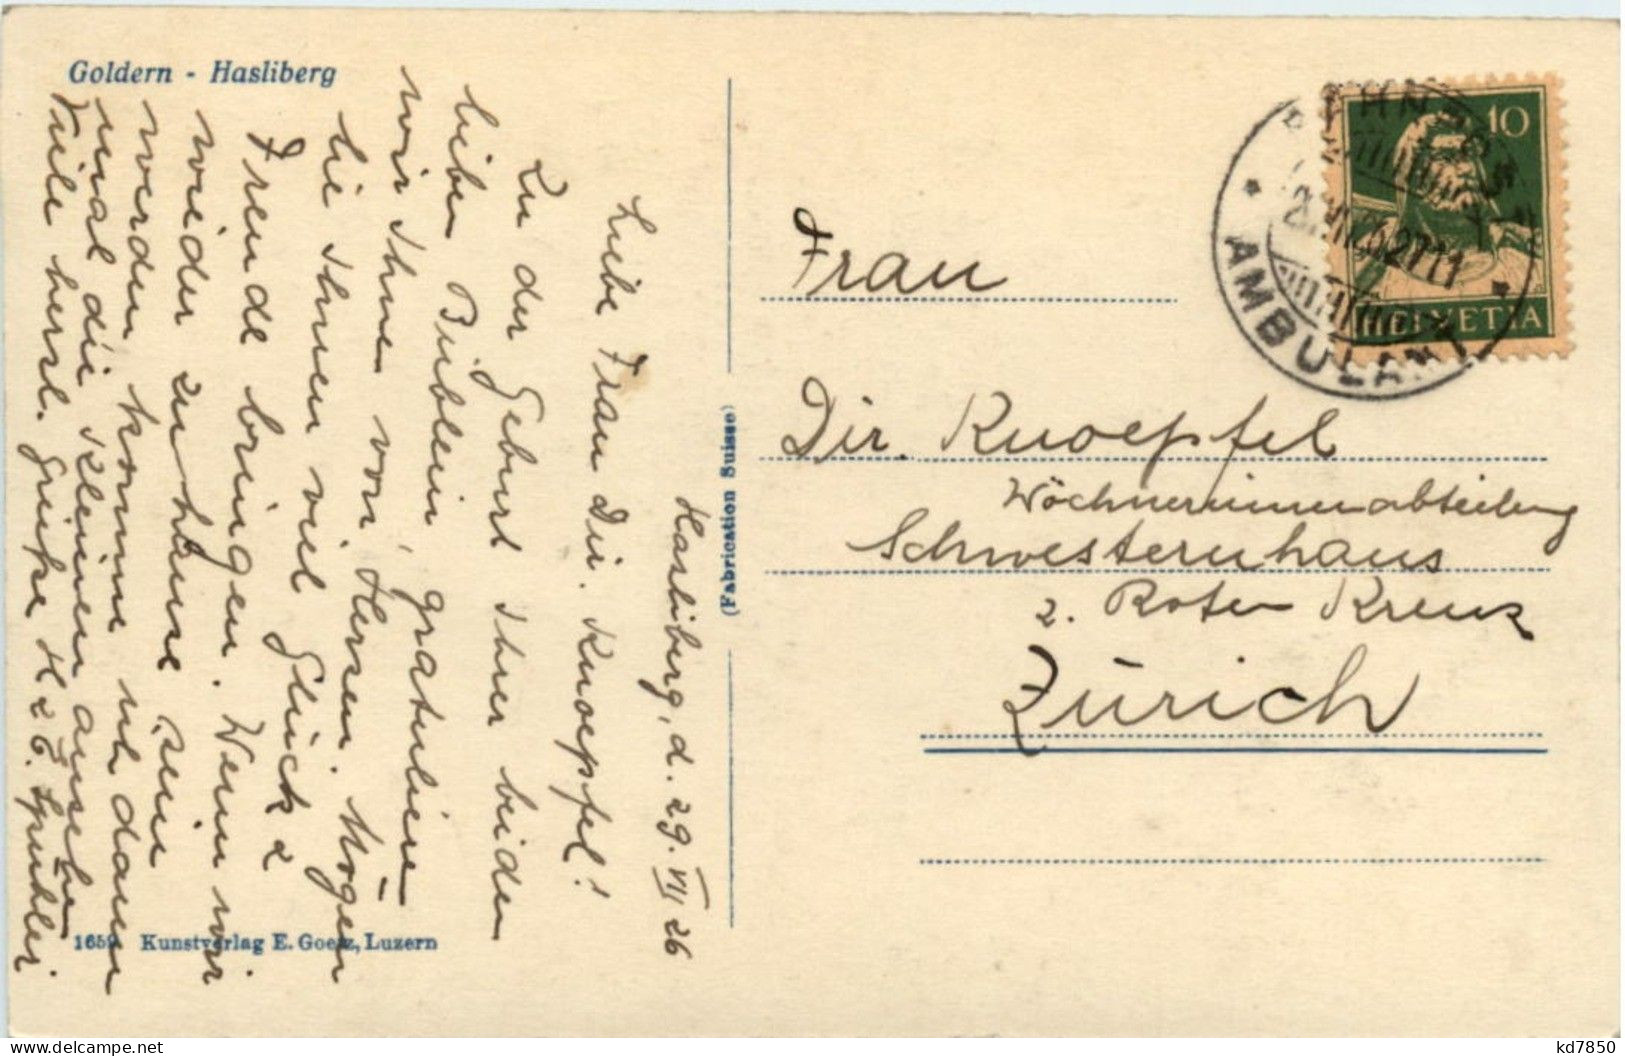 Goldern - Hasliberg
Hasliberg, d. 29. VII 26
Liebe Frau Dir. Knoepfel!
Zu der Geburt Ihrer beiden
lieben Büblein, gratulieren
wir Ihnen von Herzen. Mögen
sie Ihnen viel Glück &
Freude bringen. Wenn wir
wieder zu hause sein
werden komme ich dann
mal die Kleinen ansehen
Viele herzl. Grüsse H & E.
1659 Kunstverlag E. Goetz, Luzern
(Fabrication Suisse)
BAHNPOST
AMBULANT
10
HELVETIA
Frau
Dir. Knoepfel
Wöchnerinnenabteilung
Schwesternhaus
z. Roten Kreuz
Zürich
kd7850